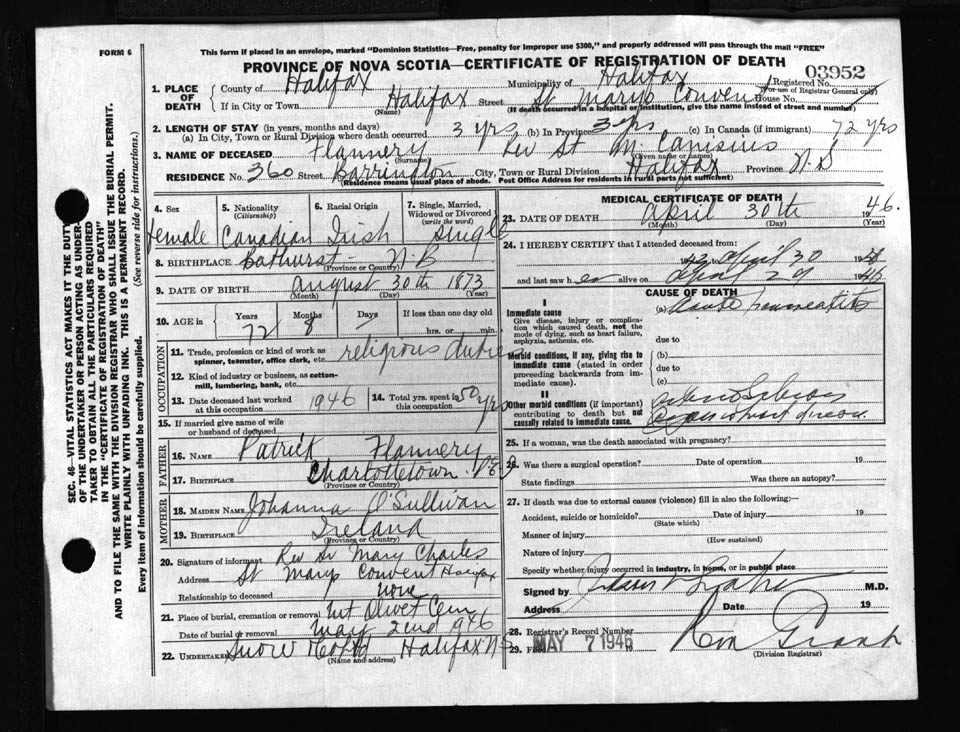 FORM 6
This form if placed in an envelope, marked "Dominion Statistics—Free, penalty for improper use $300," and properly addressed will pass through the mail "FREE"
PROVINCE OF NOVA SCOTIA—CERTIFICATE OF REGISTRATION OF DEATH
03952
1. PLACE OF DEATH
County of Halifax Municipality of Halifax Registered No.
(For use of Registrar General only)
If in City or Town Halifax Street St Marys Convent House No.
(Name) (If death occurred in a hospital or institution, give name instead of street and number)
2. LENGTH OF STAY (in years, months and days)
(a) In City, Town or Rural Division where death occurred 3 yrs (b) In Province 3 yrs (c) In Canada (if immigrant) 72 yrs
3. NAME OF DECEASED Flannery Rev St M. Canisius
(Surname) (Given name or names)
RESIDENCE No. 360 Street Barrington City, Town or Rural Division Halifax Province N.S
(Residence means usual place of abode. Post Office Address for residents in rural parts not sufficient)
4. Sex
female
5. Nationality
(Citizenship)
Canadian
6. Racial Origin
Irish
7. Single, Married, Widowed or Divorced
(write the word)
Single
8. BIRTHPLACE Bathurst N.B
(Province or Country)
9. DATE OF BIRTH August 30th 1873
(Month) (Day) (Year)
10. AGE in Years Months Days If less than one day
72 8 hrs. or min.
OCCUPATION
11. Trade, profession or kind of work as spinner, teamster, office clerk, etc. religious duties
12. Kind of industry or business, as cotton-mill, lumbering, bank, etc.
13. Date deceased last worked at this occupation 1946
14. Total yrs. spent in this occupation 50 yrs
15. If married give name of wife or husband of deceased
FATHER
16. NAME Patrick Flannery
17. BIRTHPLACE Charlottetown P.E.I
(Province or Country)
MOTHER
18. MAIDEN NAME Johanna O'Sullivan
19. BIRTHPLACE Ireland
(Province or Country)
20. Signature of informant Rev Sr Mary Charles
Address St Marys Convent Halifax
Relationship to deceased none
21. Place of burial, cremation or removal Mt Olivet Cem
Date of burial or removal May 2nd 1946
22. UNDERTAKER Snow Halifax N.S
(Name and address)
MEDICAL CERTIFICATE OF DEATH
23. DATE OF DEATH April 30th 1946.
(Month) (Day) (Year)
24. I HEREBY CERTIFY that I attended deceased from
April 30
and last saw h er alive on April 29 1946
CAUSE OF DEATH
I
Immediate cause
Give disease, injury or complication which caused death, not the mode of dying, such as heart failure, asphyxia, asthenia, etc.
(a) Acute
due to
Morbid conditions, if any, giving rise to immediate cause (stated in order proceeding backwards from immediate cause).
(b)
due to
(c)
II
Other morbid conditions (if important) contributing to death but not causally related to immediate cause.
25. If a woman, was the death associated with pregnancy?
26. Was there a surgical operation? Date of operation 19
State findings Was there an autopsy?
27. If death was due to external causes (violence) fill in also the following:
Accident, suicide or homicide? Date of injury 19
(State which)
Manner of injury
(How sustained)
Nature of injury
Specify whether injury occurred in industry, in home, or in public place
Signed by M.D.
Address Date 19
28. Registrar's Record Number
29. Filed MAY 7 1946
(Division Registrar)
SEC. 46—VITAL STATISTICS ACT MAKES IT THE DUTY
OF THE UNDERTAKER OR PERSON ACTING AS UNDER-
TAKER TO OBTAIN ALL THE PARTICULARS REQUIRED
IN THE "CERTIFICATE OF REGISTRATION OF DEATH"
AND TO FILE THE SAME WITH THE DIVISION REGISTRAR WHO SHALL ISSUE THE BURIAL PERMIT.
WRITE PLAINLY WITH UNFADING INK. THIS IS A PERMANENT RECORD.
Every item of information should be carefully supplied. (See reverse side for instructions.)